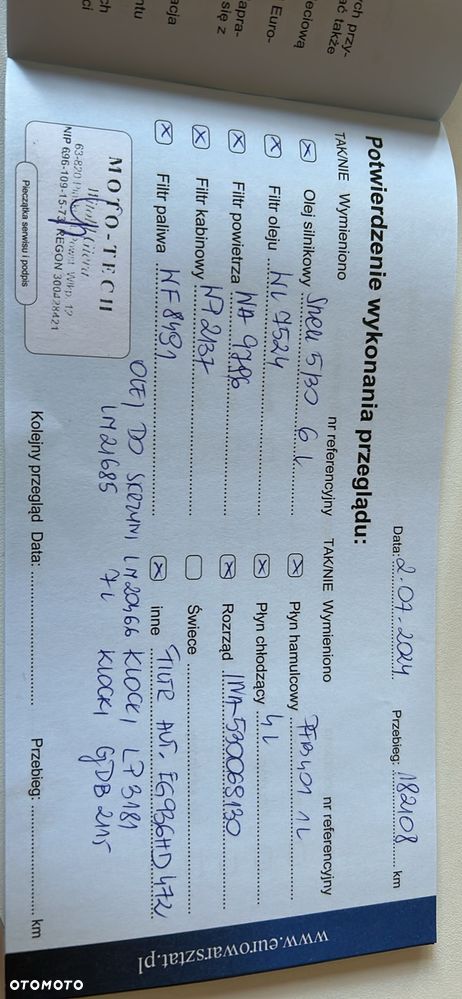 ych przy-
ać także
ęciową
Euro-
apra-
się z
acja
ntu
ch
ci
Data: 2.07.2024 Przebieg: 182108 km
Potwierdzenie wykonania przeglądu:
TAK/NIE Wymieniono nr referencyjny TAK/NIE Wymieniono nr referencyjny
x Olej silnikowy Shell 5/30 6L x Płyn hamulcowy PFB401 1L
x Filtr oleju WL 7524 x Płyn chłodzący 4L
x Filtr powietrza WA 9796 x Rozrząd INA 530068130
x Filtr kabinowy WP2137 Świece
x Filtr paliwa WF8491 x inne FILTR AUT. EG936HD 472
OLEJ DO SKRZYNI LM20466 KLOCKI LP3181
LM21685 7L KLOCKI GDB2115
MOTO-TECH
63-820
NIP 696-109-15-7 REGON 300428421
Pieczątka serwisu i podpis
Kolejny przegląd Data: Przebieg: km
www.eurowarsztat.pl
OTOMOTO